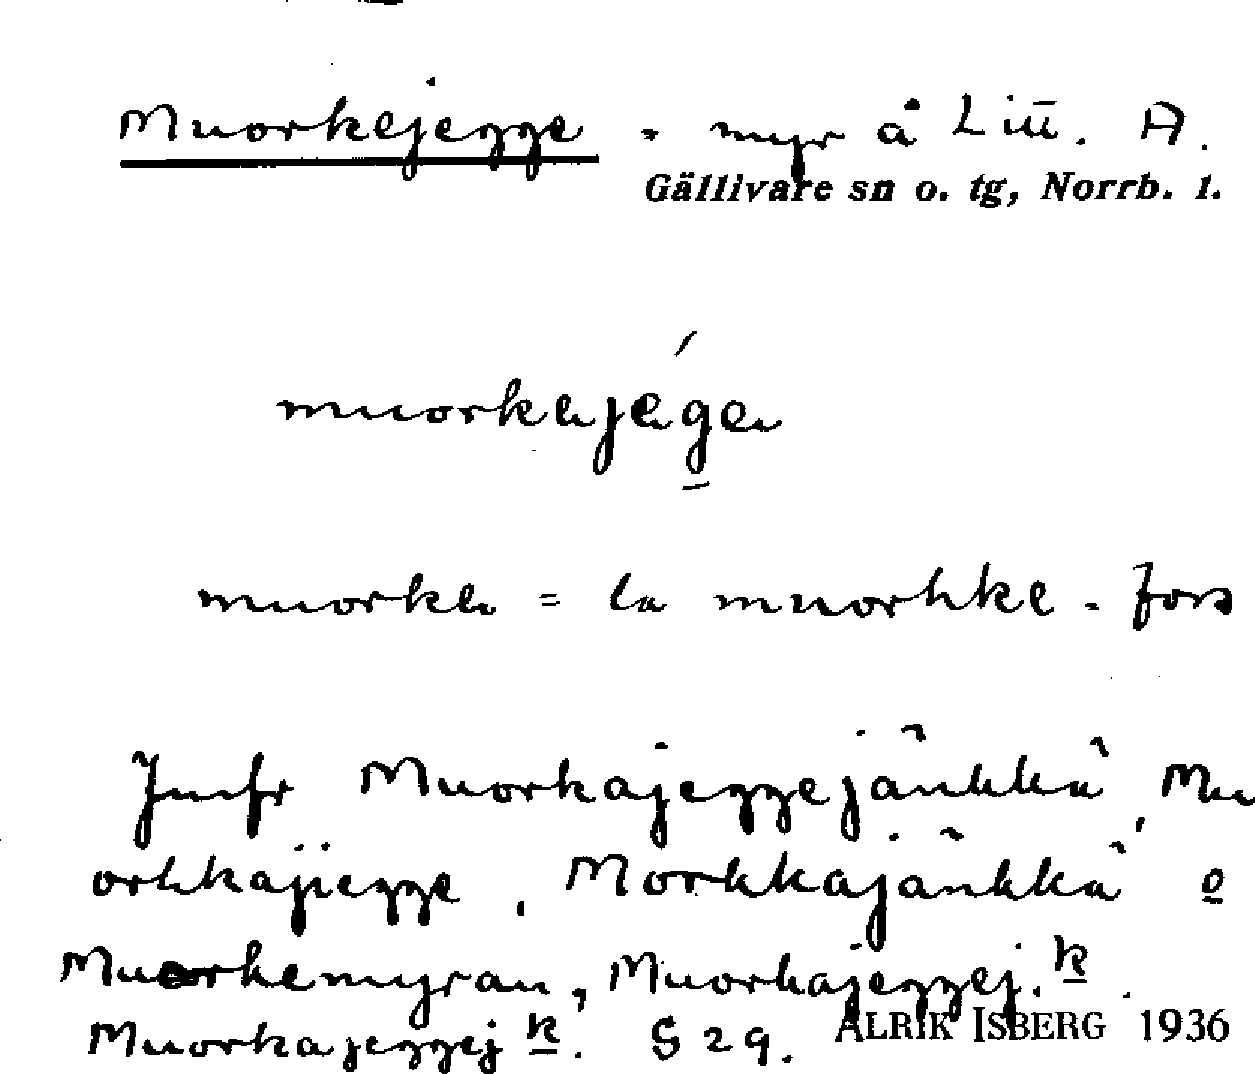 Muorkejegge - myr å Litt. A.
Gällivare sn o. tg, Norrb. l.
muorkejégeꞏ
muorke = la muorhke - fors
Jmfr Muorkajeggejânkkâ, Mu
orkkajiegge, Morkkajânkkâ o
Muorkemyran, Muorkajeggej. k.
Muorkajeggej k. S 29. ALRIK ISBERG 1936